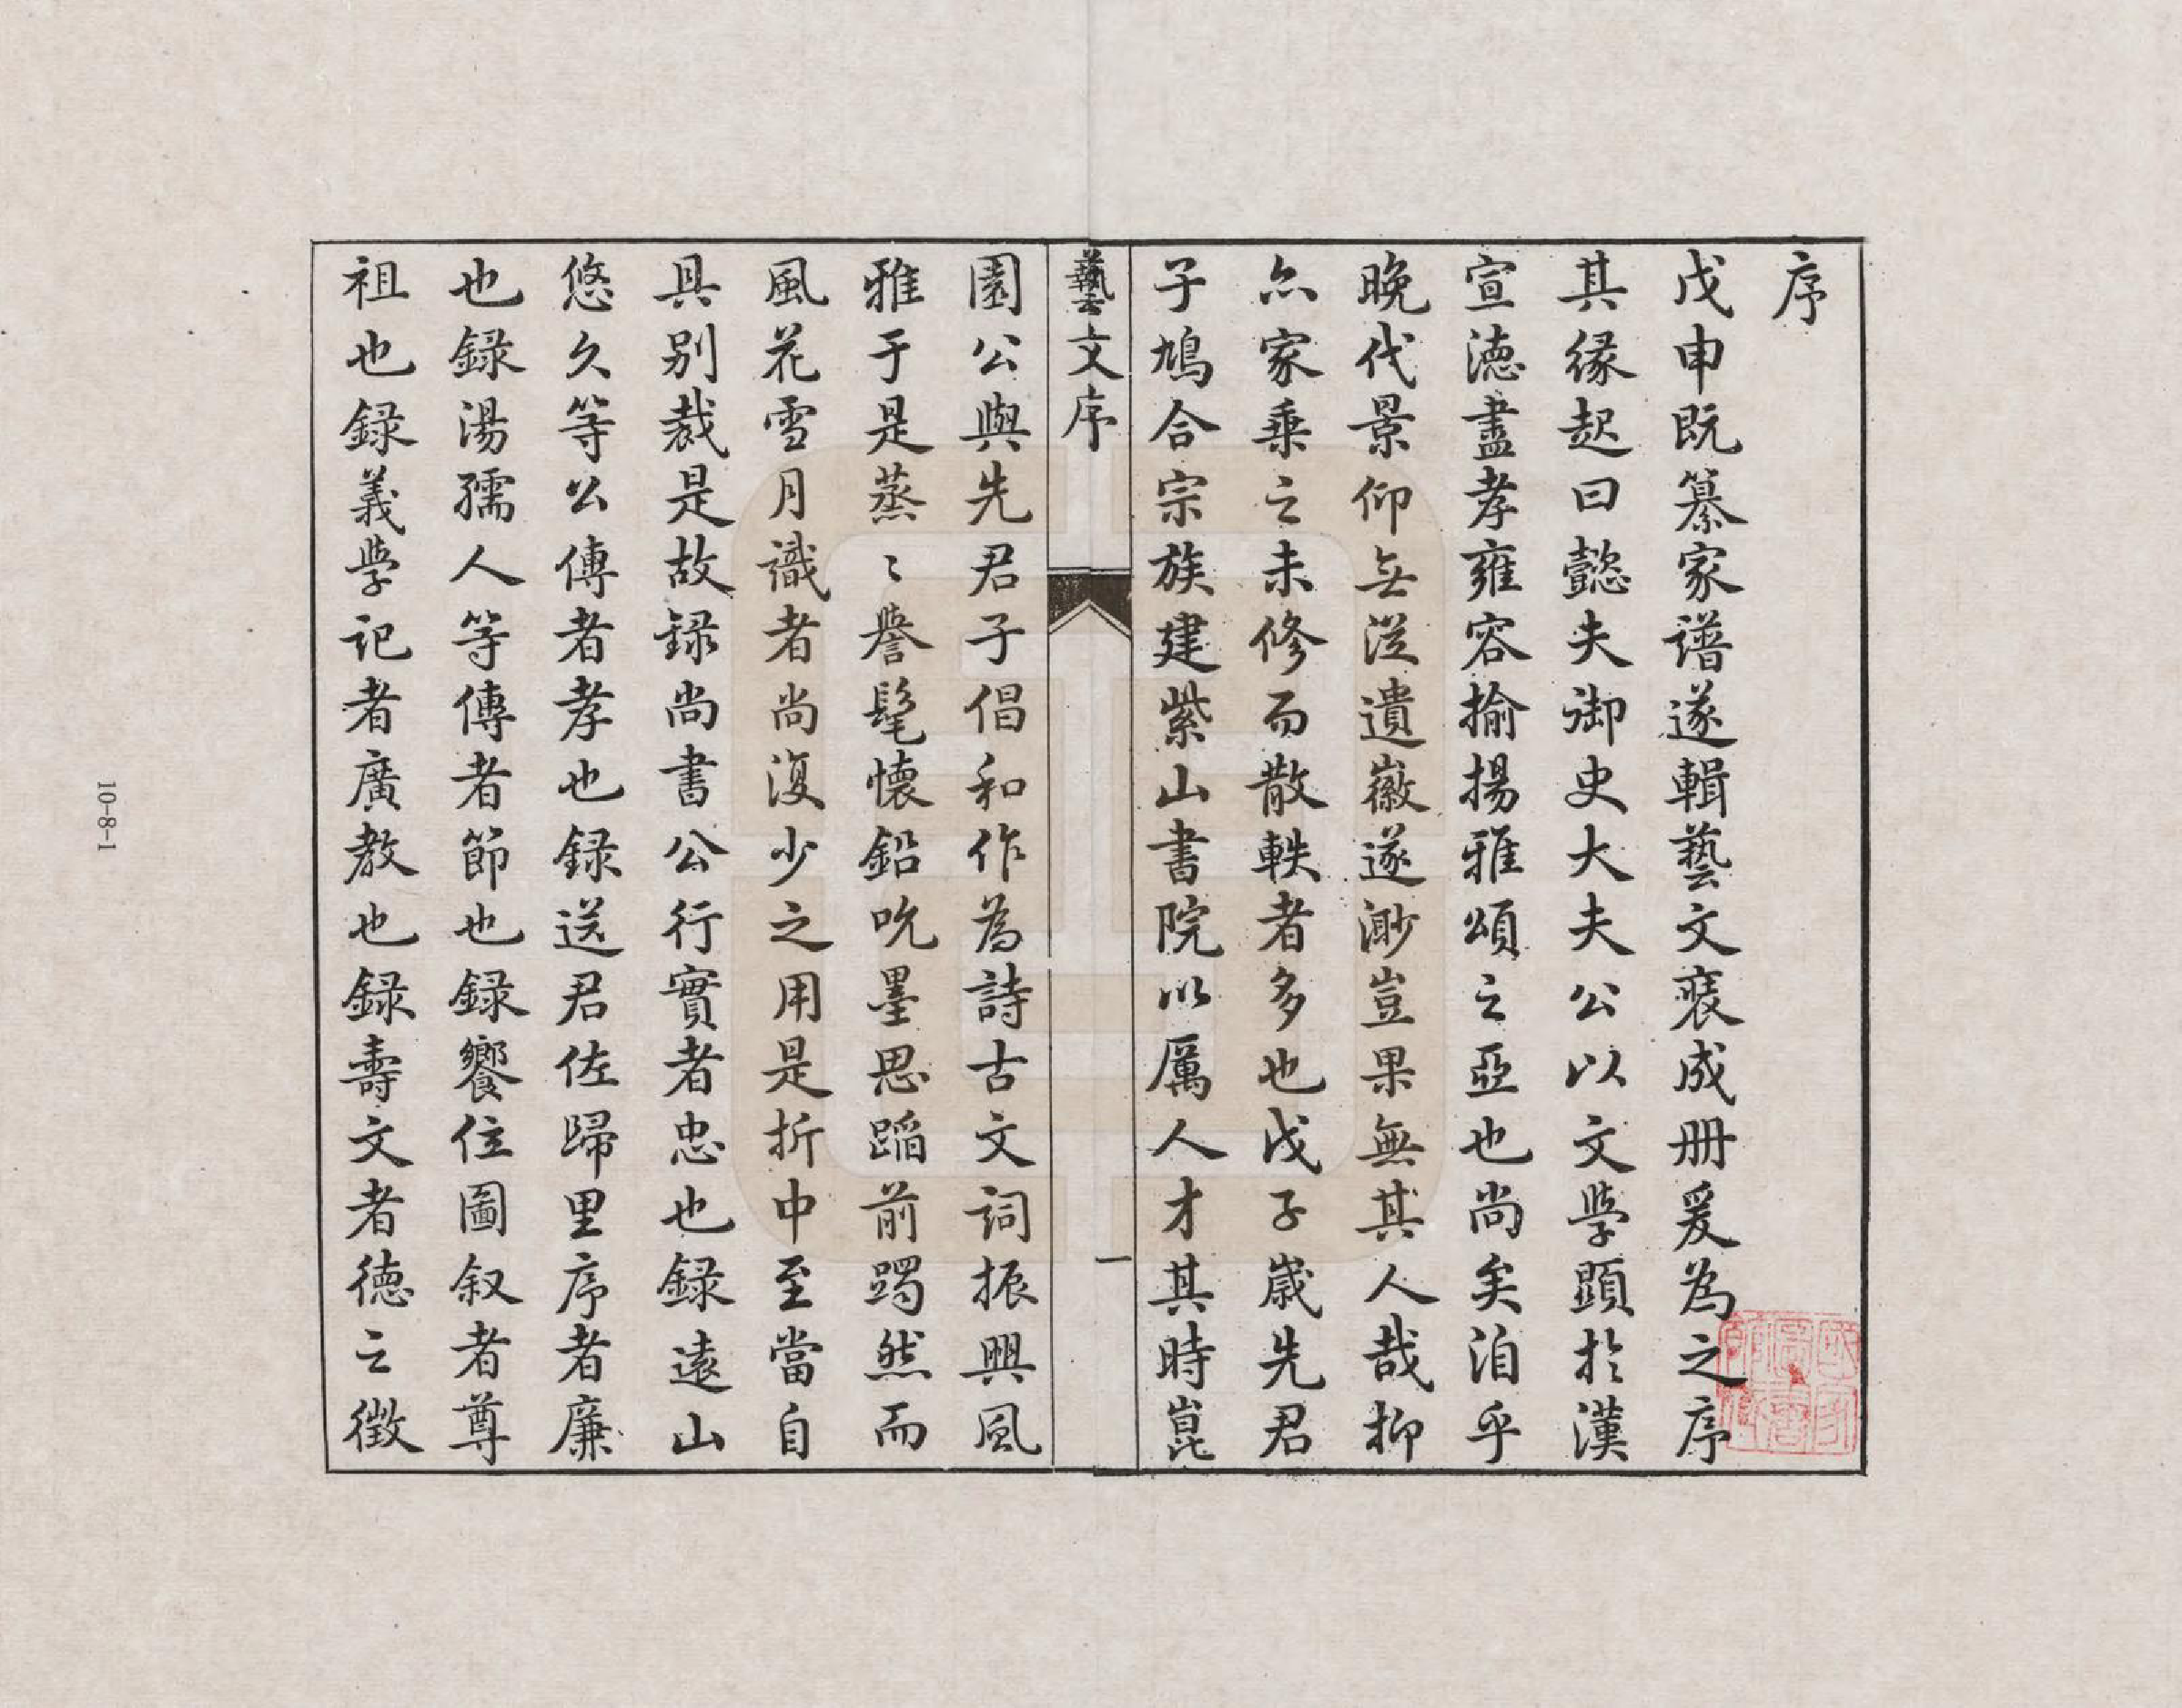 序
戊申既纂家譜遂輯藝文裒成册爰為之序
其緣起曰懿夫御史大夫公以文學顯於漢
宣德盡孝雍容揄揚雅頌之亞也尚矣洎乎
晚代景仰無從遺徽遂渺豈果無其人哉抑
亦家乘之未修而散軼者多也戊子歲先君
子鳩合宗族建紫山書院以厲人才其時崑
藝文序
一
園公與先君子倡和作為詩古文詞振興風
雅于是蒸〻譽髦懷鉛吮墨思蹈前躅然而
風花雪月識者尚復少之用是折中至當自
具別裁是故録尚書公行實者忠也録遠山
悠久等公傳者孝也録送君佐歸里序者廉
也録湯孺人等傳者節也録饗位圖叙者尊
祖也録義學記者廣教也録壽文者德之徵
10-8-1